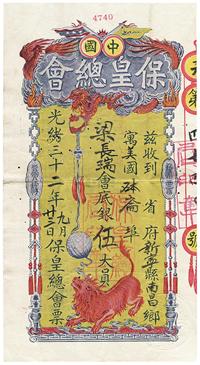 4740
中國
保皇總會
茲收到 省 府新寧縣南昌鄉
寓美國砵崙埠
梁長瑞會底銀伍大員
光緒三十二年九月廿三日保皇總會票
號